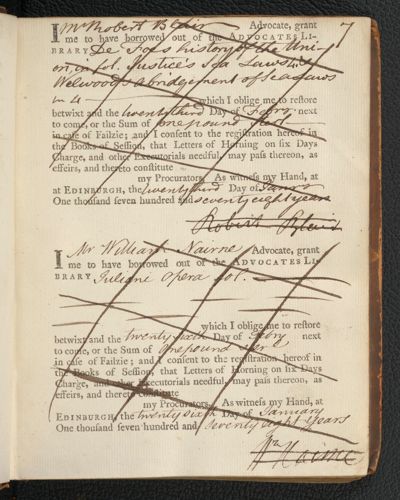 7
I Mr Robert Blair Advocate, grant
me to have borrowed out of the ADVOCATES LI-
BRARY De Foe's history of the Uni-
on, in fol. Justice's Sea Laws 4to
Welwood's abridgement of sea laws
in 4 — which I oblige me to restore
betwixt and the twenty third Day of Febry next
to come, or the Sum of one pound
in case of Failzie; and I consent to the registration hereof in
the Books of Session, that Letters of Horning on six Days
Charge, and other Executorials needful, may pass thereon, as
effeirs, and thereto constitute
my Procurators. As witness my Hand, at
at EDINBURGH, the twenty third Day of Janry
One thousand seven hundred and seventy eight years
Robert Blair
I Mr William Nairne Advocate, grant
me to have borrowed out of the ADVOCATES LI-
BRARY Juliani Opera fol.
which I oblige me to restore
betwixt and the twenty sixth Day of Febry next
to come, or the Sum of One pound
in case of Failzie; and I consent to the registration hereof in
the Books of Session, that Letters of Horning on six Days
Charge, and other Executorials needful, may pass thereon, as
effeirs, and thereto constitute
my Procurators. As witness my Hand, at
EDINBURGH, the twenty sixth Day of January
One thousand seven hundred and seventy eight years
Wm Nairne